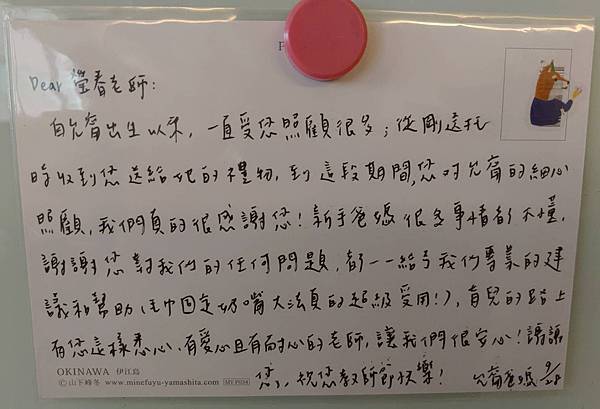 P
Dear 瑩春老師:
自允齊出生以來,一直受您照顧很多;從剛送托
時收到您送給她的禮物,到這段期間,您對允齊的細心
照顧,我們真的很感謝您!新手爸媽很多事情都不懂,
謝謝您對我們的任何問題,都一一給予我們專業的建
議和幫助(毛巾固定奶嘴大法真的超級受用!),育兒的路上
有您這樣悉心、有愛心且有耐心的老師,讓我們很安心!謝謝
您,祝您教師節快樂! 允齊爸媽 9/28
OKINAWA 伊江島
© 山下峰冬 www.minefuyu-yamashita.com MY-PS04